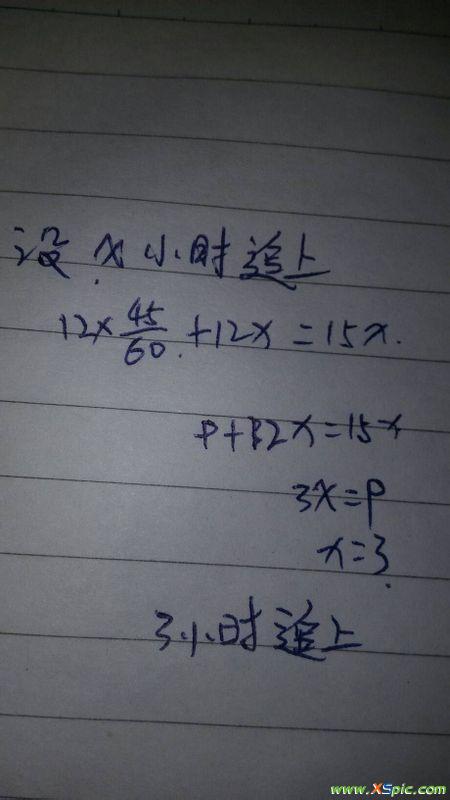 设 x 小时追上
12×45/60+12x=15x.
9+12x=15x
3x=9
x=3.
3小时追上
www.XSpic.com